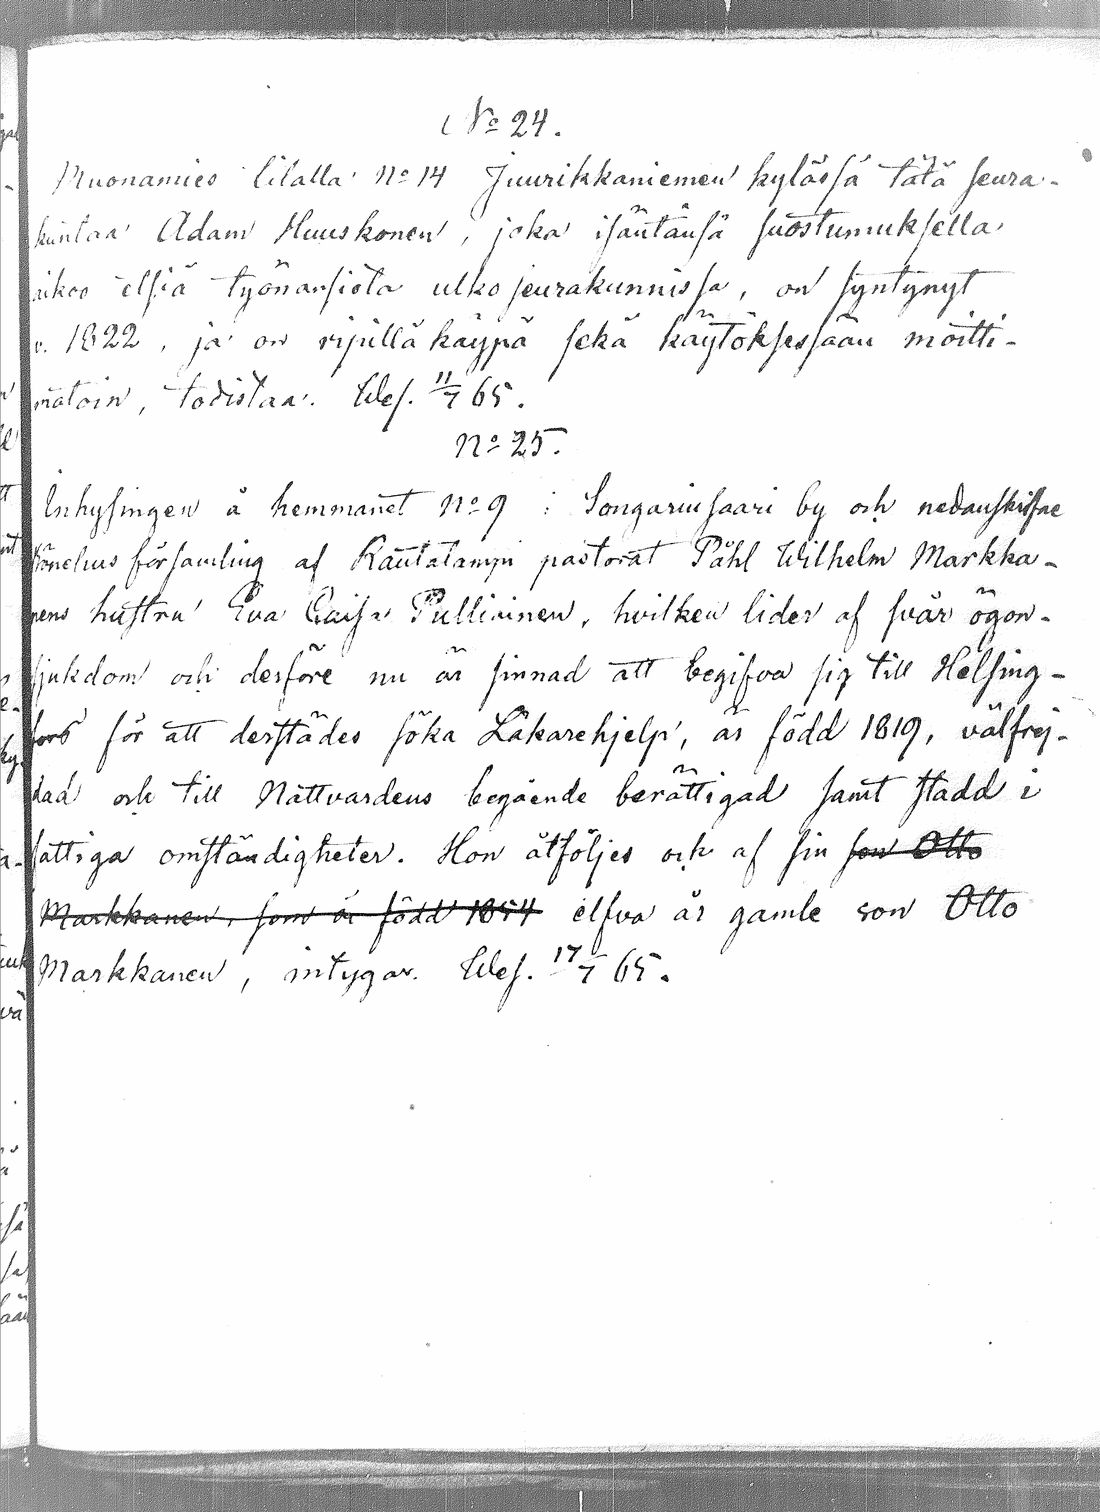 No 24.
Muonamies tilalla No 14 Juurikkaniemen kylässä tätä seura-
kuntaa Adam Huuskonen, joka isäntänsä suostumuksella
aikoo etsiä työnansiota ulko seurakunnissa, on syntynyt
v. 1822, ja on ripillä käypä sekä käytöksessään moitti-
matoin, todistaa. Wes. 11/7 65.
No 25.
Inhysingen å hemmanet No 9 i Songarinsaari by och nedanskrifne
församling af Rautalampi pastorat Påhl Wilhelm Markka-
nens hustru Eva Caisa Pulliainen, hvilken lider af svår ögon-
sjukdom och derföre nu är sinnad att begifva sig till Helsing-
fors för att derstädes söka Läkarehjelp, är född 1819, välfrej-
dad och till Nattvardens begående berättigad samt stadd i
fattiga omständigheter. Hon åtföljes och af sin son Otto
Markkanen, som är född 1854 elfva år gamle son Otto
Markkanen, intygar. Wes. 17/7 65.